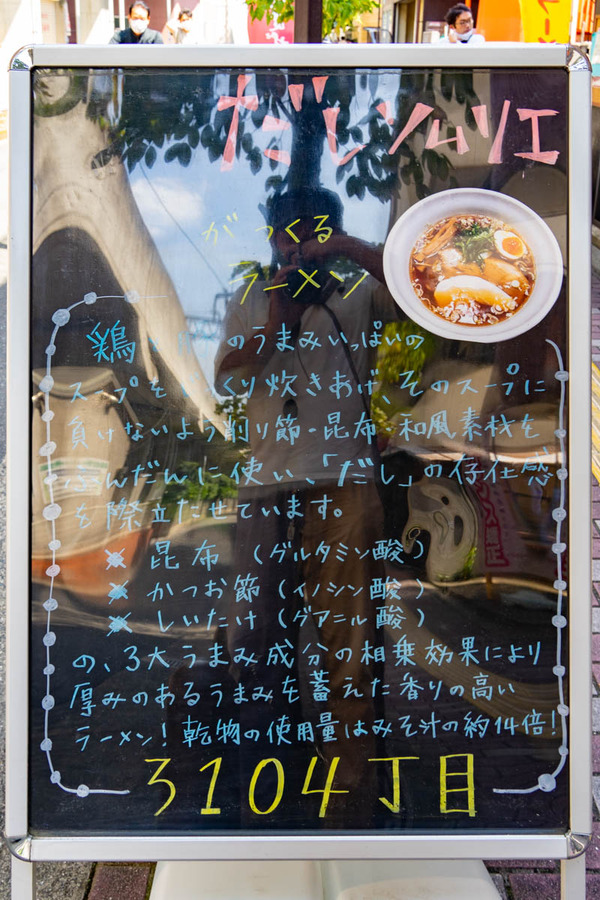 だしソムリエ
がつくる
ラーメン
鶏 のうまみいっぱいの
スープをじっくり炊きあげ、そのスープに
負けないよう削り節・昆布・和風素材を
ふんだんに使い、「だし」の存在感
を際立たせています。
※ 昆布 (グルタミン酸)
※ かつお節 (イノシン酸)
※ しいたけ (グアニル酸)
の、3大うまみ成分の相乗効果により
厚みのあるうまみを蓄えた香りの高い
ラーメン!乾物の使用量はみそ汁の約14倍!
3104丁目